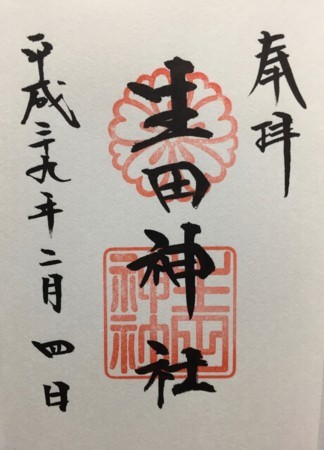 奉拝
生田神社
平成二十九年二月四日